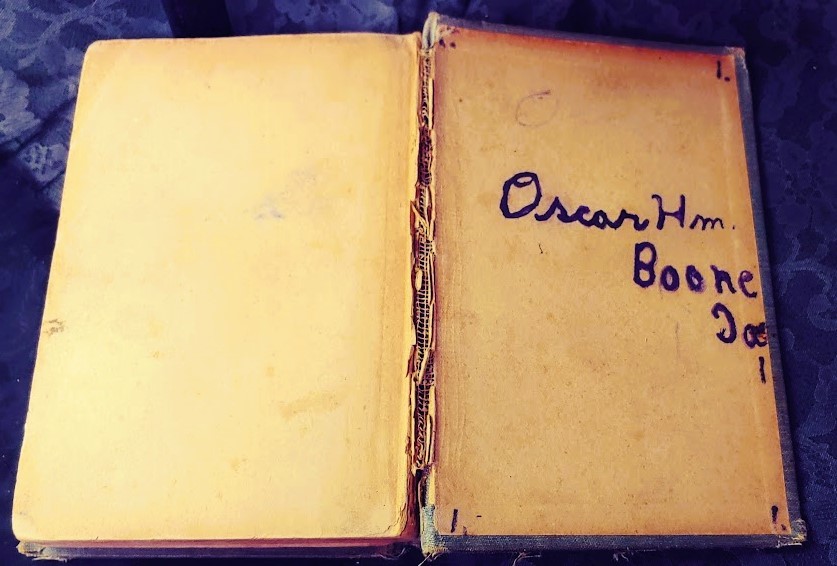 1.
Oscar Hm.
Boone
Ia
1
1.
1.